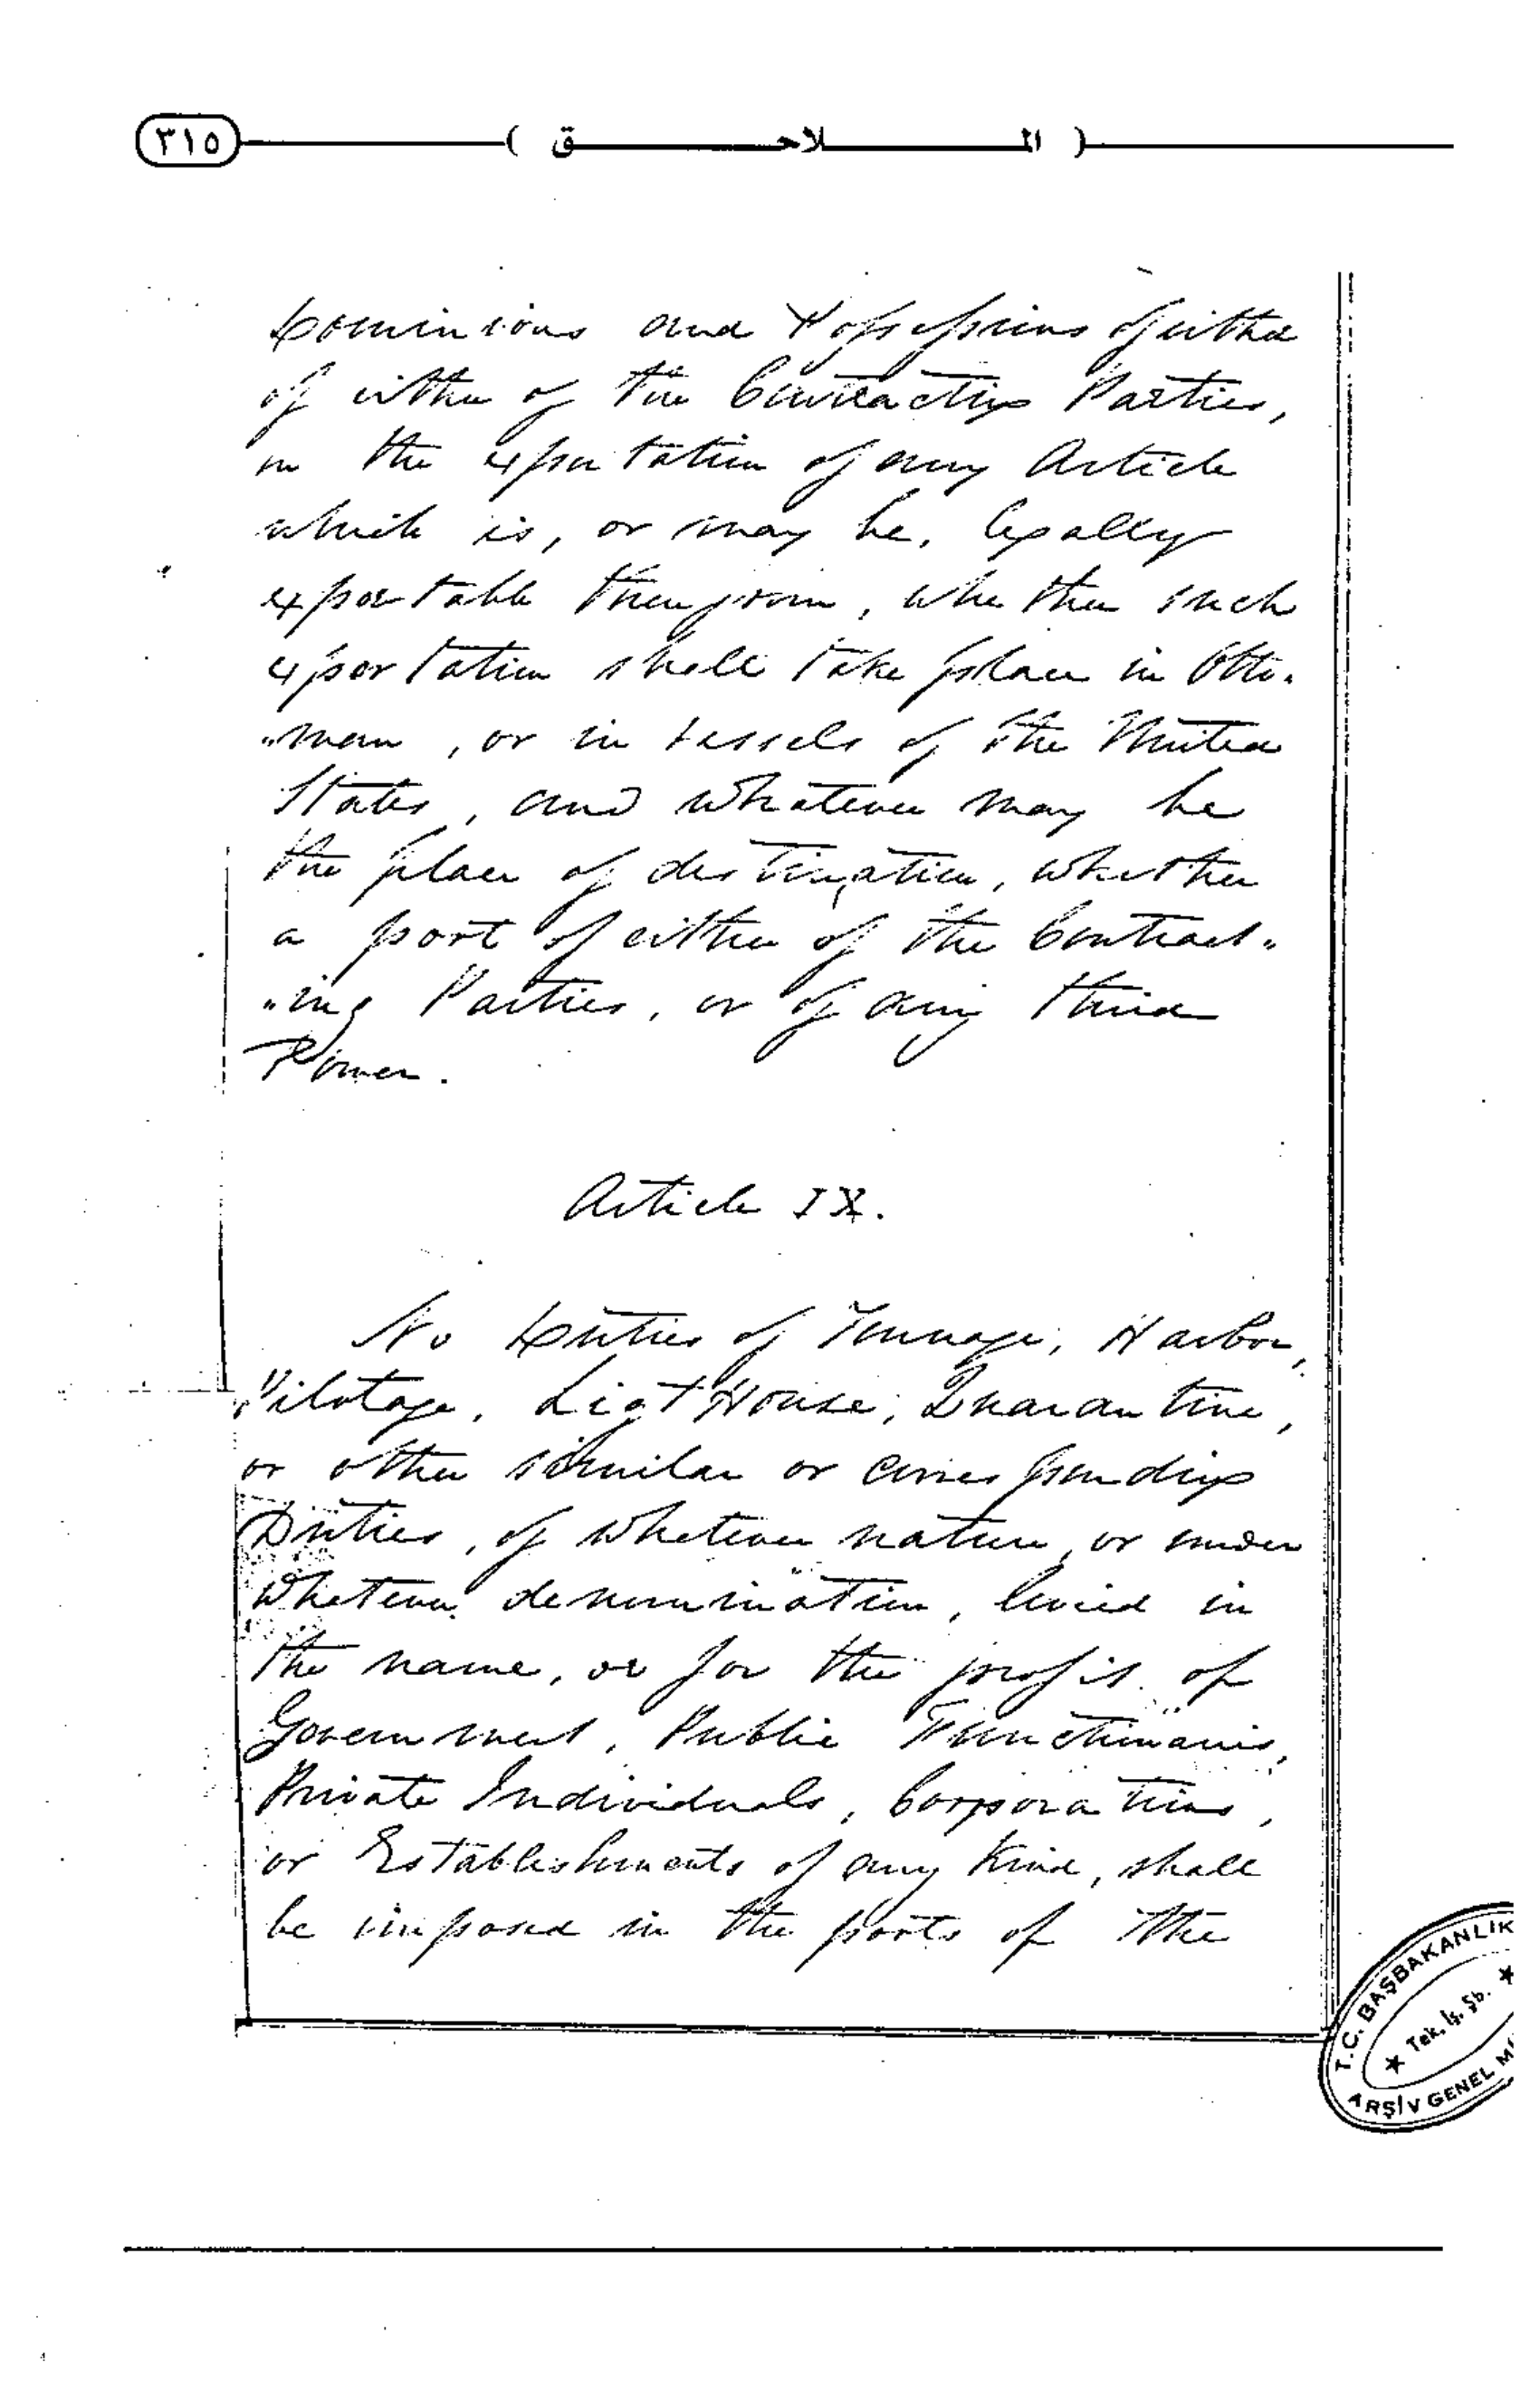 ٣١٥ ( الملاحق )
Dominions and Possessions of eithe
of either of the Contracting Parties,
on the exportation of any Article
which is, or may be, legally
exportable therefrom, whether such
exportation shall take place in Otto-
"man, or in Vessels of the United
States, and whatever may be
the place of destination, whether
a port of either of the Contract-
"ing Parties, or of any third
Power.
Article IX.
No Duties of Tonnage, Harbor,
Pilotage, Ligt House, Quarantine,
or other similar or corresponding
Duties, of whatever nature, or under
whatever denomination, levied in
the name, or for the profit of
Government, Public Functionaries,
Private Individuals, Corporations,
or Establishments of any Kind, shall
be imposed in the ports of the
T.C. BAŞBAKANLIK
★ Tek. İş. Şb. ★
ARŞİV GENEL